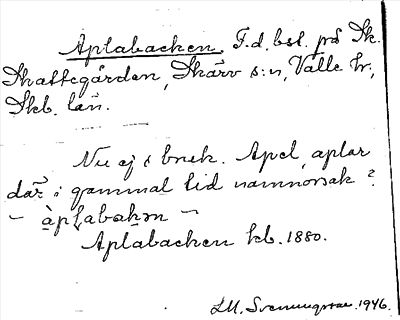 Aplabacken. F.d. bst. på Sk.
Skattegården, Skärv s:n, Valle hr,
Skb. län.
Nu ej i bruk. Apel, aplar
där i gammal tid namnorsak?
- àplabakən -
Aplabacken kb. 1880.
LM. Svenungsson 1946.